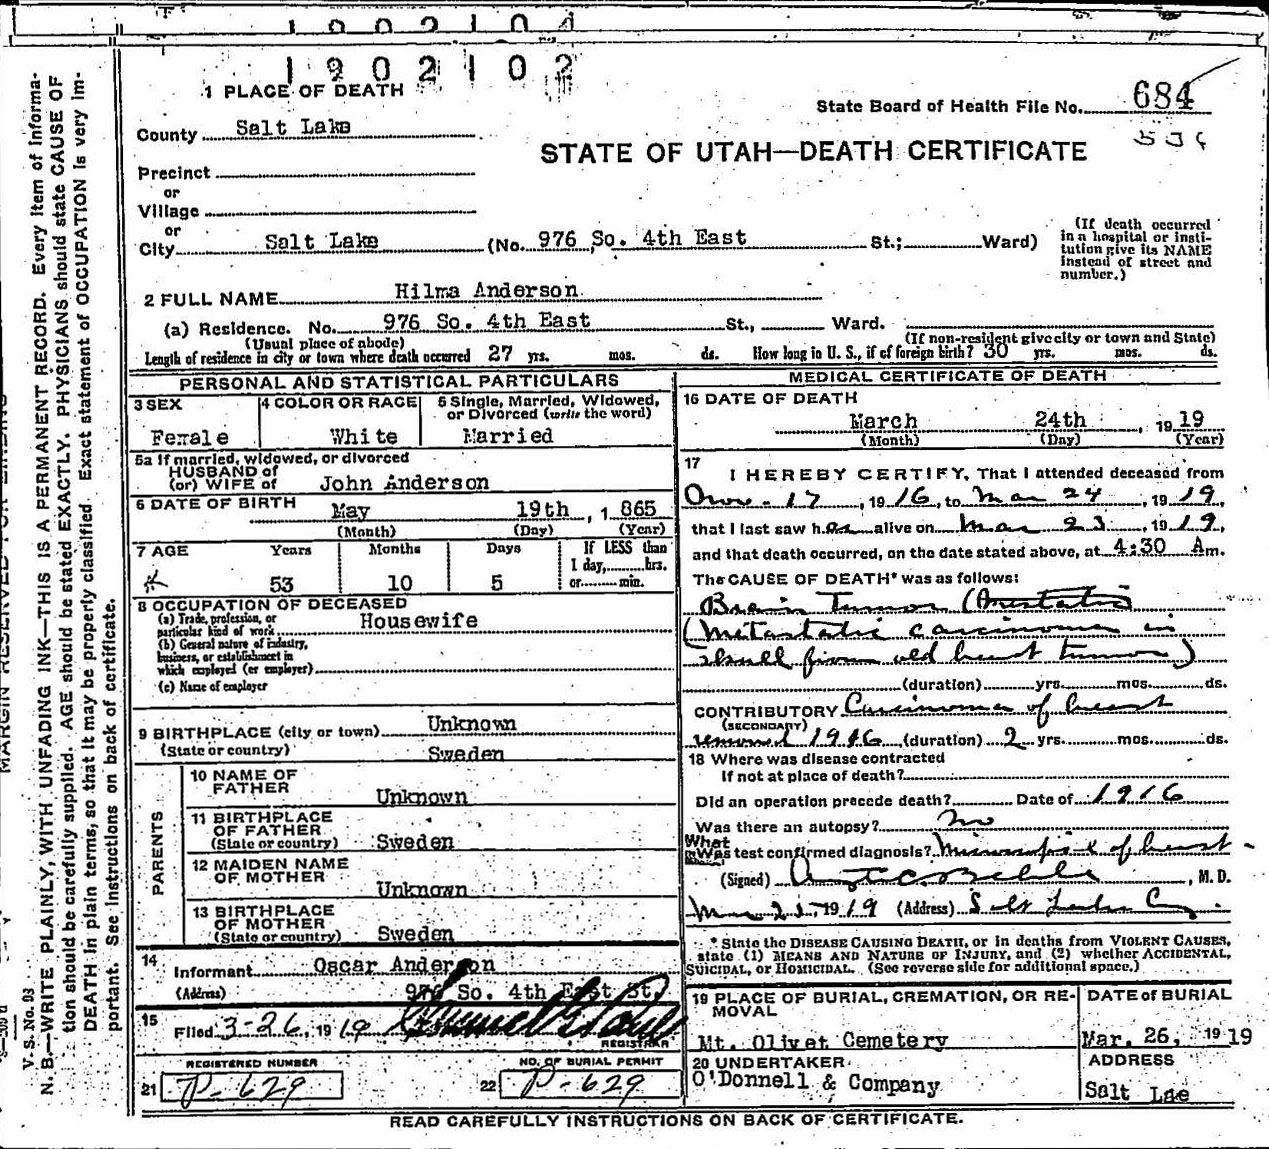 1902104
1902102
1 PLACE OF DEATH
State Board of Health File No. 684
County Salt Lake
STATE OF UTAH—DEATH CERTIFICATE
Precinct
or
Village
or
City Salt Lake (No. 976 So. 4th East St.; Ward)
(If death occurred in a hospital or insti-
tution give its NAME
instead of street and
number.)
2 FULL NAME Hilma Anderson
(a) Residence. No. 976 So. 4th East St., Ward.
(Usual place of abode) (If non-resident give city or town and State)
Length of residence in city or town where death occurred 27 yrs. mos. ds. How long in U. S., if of foreign birth? 30 yrs. mos. ds.
PERSONAL AND STATISTICAL PARTICULARS
3 SEX 4 COLOR OR RACE 5 Single, Married, Widowed,
or Divorced (write the word)
Female White Married
5a If married, widowed, or divorced
HUSBAND of
(or) WIFE of John Anderson
6 DATE OF BIRTH May 19th, 1865
(Month) (Day) (Year)
7 AGE Years Months Days If LESS than
1 day, hrs.
53 10 5 or min.
8 OCCUPATION OF DECEASED
(a) Trade, profession, or
particular kind of work Housewife
(b) General nature of industry,
business, or establishment in
which employed (or employer)
(c) Name of employer
9 BIRTHPLACE (city or town) Unknown
(State or country) Sweden
PARENTS
10 NAME OF
FATHER Unknown
11 BIRTHPLACE
OF FATHER
(State or country) Sweden
12 MAIDEN NAME
OF MOTHER Unknown
13 BIRTHPLACE
OF MOTHER
(State or country) Sweden
14 Informant Oscar Anderson
(Address) 976 So. 4th East St.
15 Filed 3-26, 1919
REGISTRAR
REGISTERED NUMBER NO. OF BURIAL PERMIT
21 P-629 22 P-629
MEDICAL CERTIFICATE OF DEATH
16 DATE OF DEATH
March 24th, 1919
(Month) (Day) (Year)
17 I HEREBY CERTIFY, That I attended deceased from
Nov. 17, 1916, to Mar 24, 1919,
that I last saw her alive on Mar 23, 1919,
and that death occurred, on the date stated above, at 4:30 Am.
The CAUSE OF DEATH* was as follows:
Brain Tumor
(Metastatic carcinoma in
skull from old breast tumor)
(duration) yrs. mos. ds.
CONTRIBUTORY Carcinoma of breast
(SECONDARY)
removed 1916 (duration) 2 yrs. mos. ds.
18 Where was disease contracted
If not at place of death?
Did an operation precede death? Date of 1916
Was there an autopsy? No
What
test confirmed diagnosis? of breast
(Signed) M. D.
1919 (Address) Salt Lake Cy.
* State the DISEASE CAUSING DEATH, or in deaths from VIOLENT CAUSES,
state (1) MEANS AND NATURE OF INJURY, and (2) whether ACCIDENTAL,
SUICIDAL, or HOMICIDAL. (See reverse side for additional space.)
19 PLACE OF BURIAL, CREMATION, OR RE-
MOVAL
Mt. Olivet Cemetery
DATE of BURIAL
Mar. 26, 1919
20 UNDERTAKER
O'Donnell & Company
ADDRESS
Salt Lae
READ CAREFULLY INSTRUCTIONS ON BACK OF CERTIFICATE.
V. S. No. 93
N. B.—WRITE PLAINLY, WITH UNFADING INK—THIS IS A PERMANENT RECORD. Every item of informa-
tion should be carefully supplied. AGE should be stated EXACTLY. PHYSICIANS should state CAUSE OF
DEATH in plain terms, so that it may be properly classified. Exact statement of OCCUPATION is very im-
portant. See instructions on back of certificate.